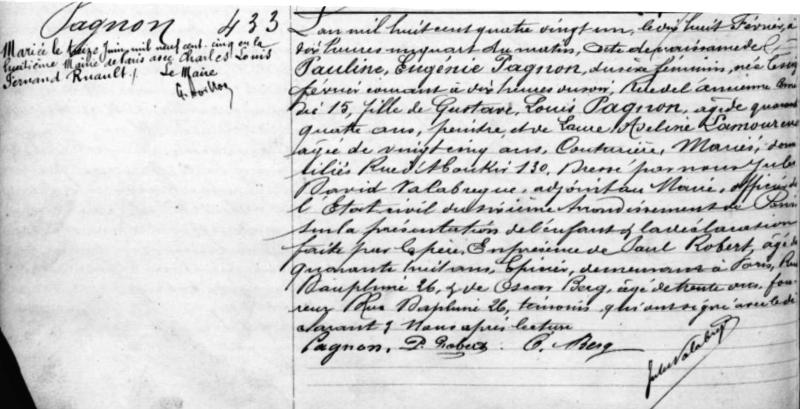 Pagnon 433
Mariée le treize Juin mil neuf cent cinq en la
huitième Mairie de Paris avec Charles Louis
Fernand Ruault
Le Maire
L'an mil huit cent quatre vingt un, le dix huit Février, à
dix heures un quart du matin, Acte de naissance de
Pauline, Eugénie Pagnon, du sexe féminin, née le cinq
février courant à dix heures du soir, Rue de l'ancienne Comé
die 15, fille de Gustave, Louis Pagnon, âgé de quarante
quatre ans, peintre, et de Laure Adeline Lamoureux
âgée de vingt cinq ans, Couturière, Mariés, domi
ciliés Rue d'Aboukir 130. Dressé par nous Jules
David Valabregue, adjoint au Maire, officier de
l'Etat civil du sixième Arrondissement de Paris
sur la présentation de l'enfant & la déclaration
faite par le père, En présence de Paul Robert, âgé de
quarante huit ans, Epicier, demeurant à Paris, Rue
Dauphine 26, & de Oscar Berg, âgé de trente ans, four
reur Rue Dauphine 26, témoins qui ont signé avec le dé
clarant & Nous après lecture
Pagnon. P. Robert O. Berg
Jules Valabregue